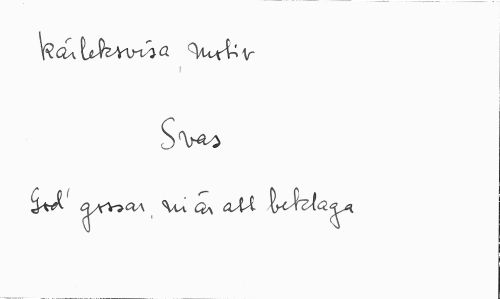 kärleksvisa, motiv
Svas
God' gossar, ni är att beklaga